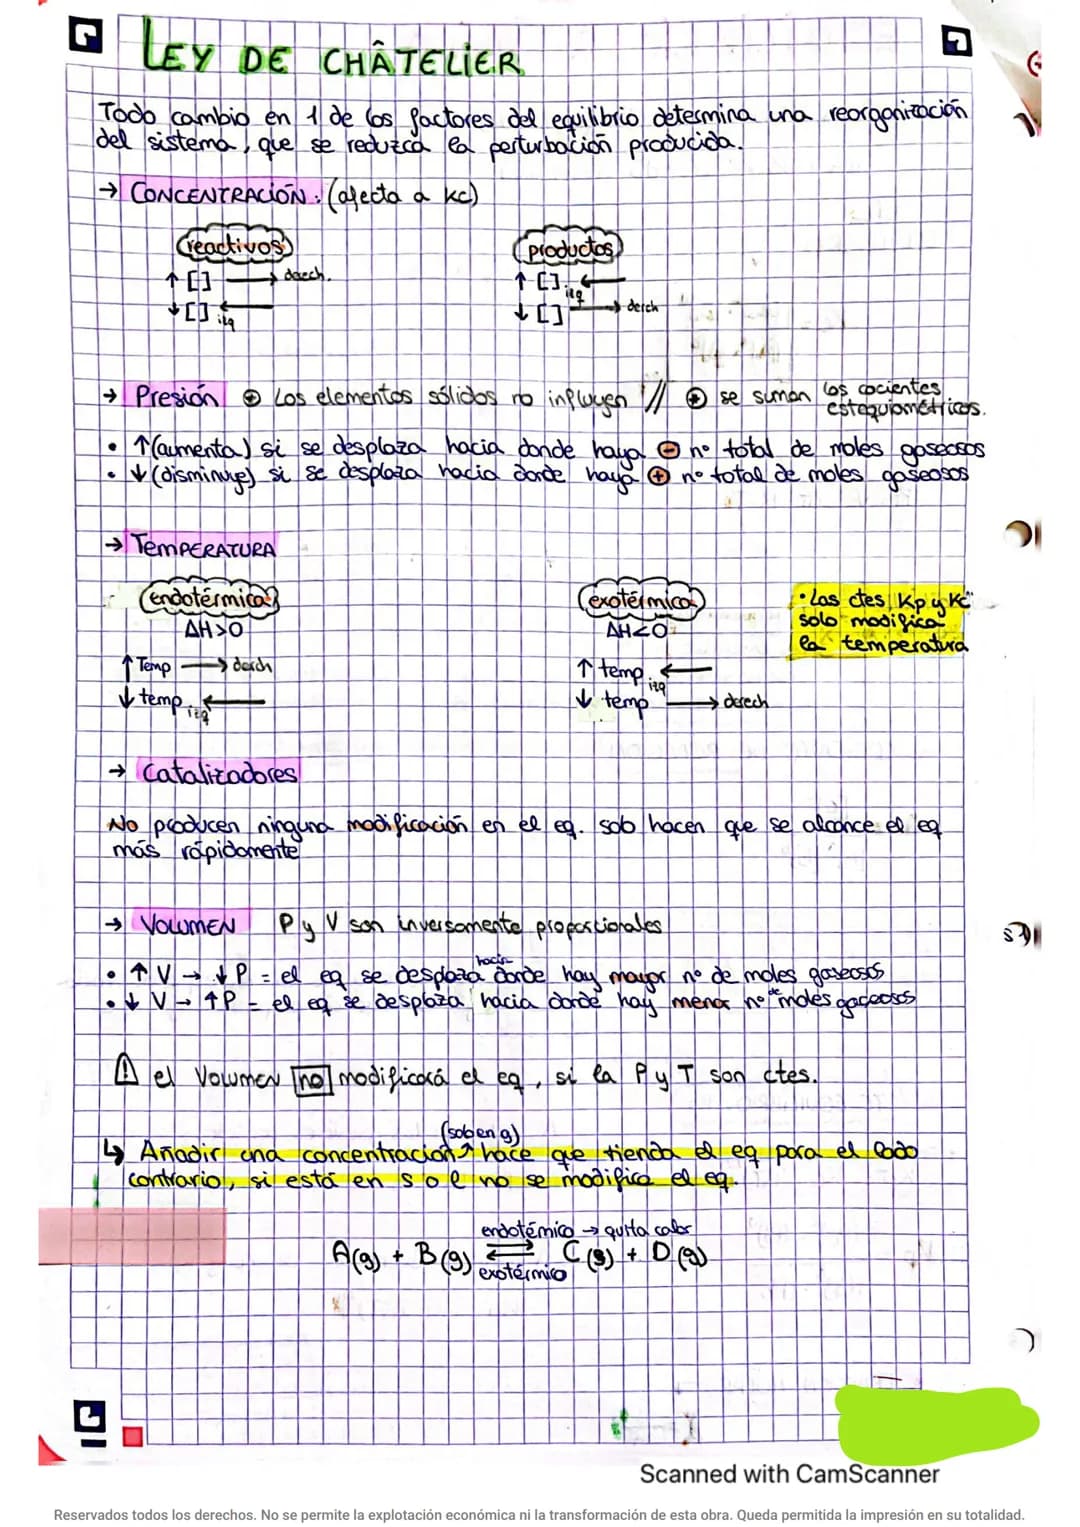 LEY DE CHÂTELIER
Todo cambio en 1 de los factores del equilibrio determina una reorganización
del sistema, que se reduzca la perturbación producida.
→ CONCENTRACIÓN: (afecta a kc)
reactivos productos
↑ [ ] → derech. ↑ [ ] ← izq
↓ [ ] ← izq ↓ [ ] → derch
→ Presión ⊕ Los elementos sólidos no influyen // ⊕ se suman los cocientes
estequiométricos.
• ↑(aumenta) si se desplaza hacia donde haya ⊖ nº total de moles gaseosos
• ↓(disminuye) si se desplaza hacia donde haya ⊕ nº total de moles gaseosos
→ TEMPERATURA
endotérmica exotérmica
ΔH>0 ΔH<0
• Las ctes Kp y Kc
solo modifica
la temperatura
↑ Temp → derch ↑ temp ← izq
↓ temp ← izq ↓ temp → derech
→ Catalizadores
No producen ninguna modificación en el eq. solo hacen que se alcance el eq
más rápidamente
→ VOLUMEN P y V son inversamente proporcionales
• ↑ V → ↓ P = el eq se desplaza hacia donde hay mayor nº de moles gaseosos
• ↓ V → ↑ P = el eq se desplaza hacia donde hay menor nº de moles gaseosos
⚠ el Volumen no modificará el eq, si la P y T son ctes.
(solo en g)
↳ Añadir una concentración ↑ hace que tienda el eq para el lado
contrario, si está en s o l no se modifica el eq.
endotérmico → quita calor
A(g) + B(g) ⇌ C(s) + D(g)
exotérmico
Scanned with CamScanner
Reservados todos los derechos. No se permite la explotación económica ni la transformación de esta obra. Queda permitida la impresión en su totalidad.